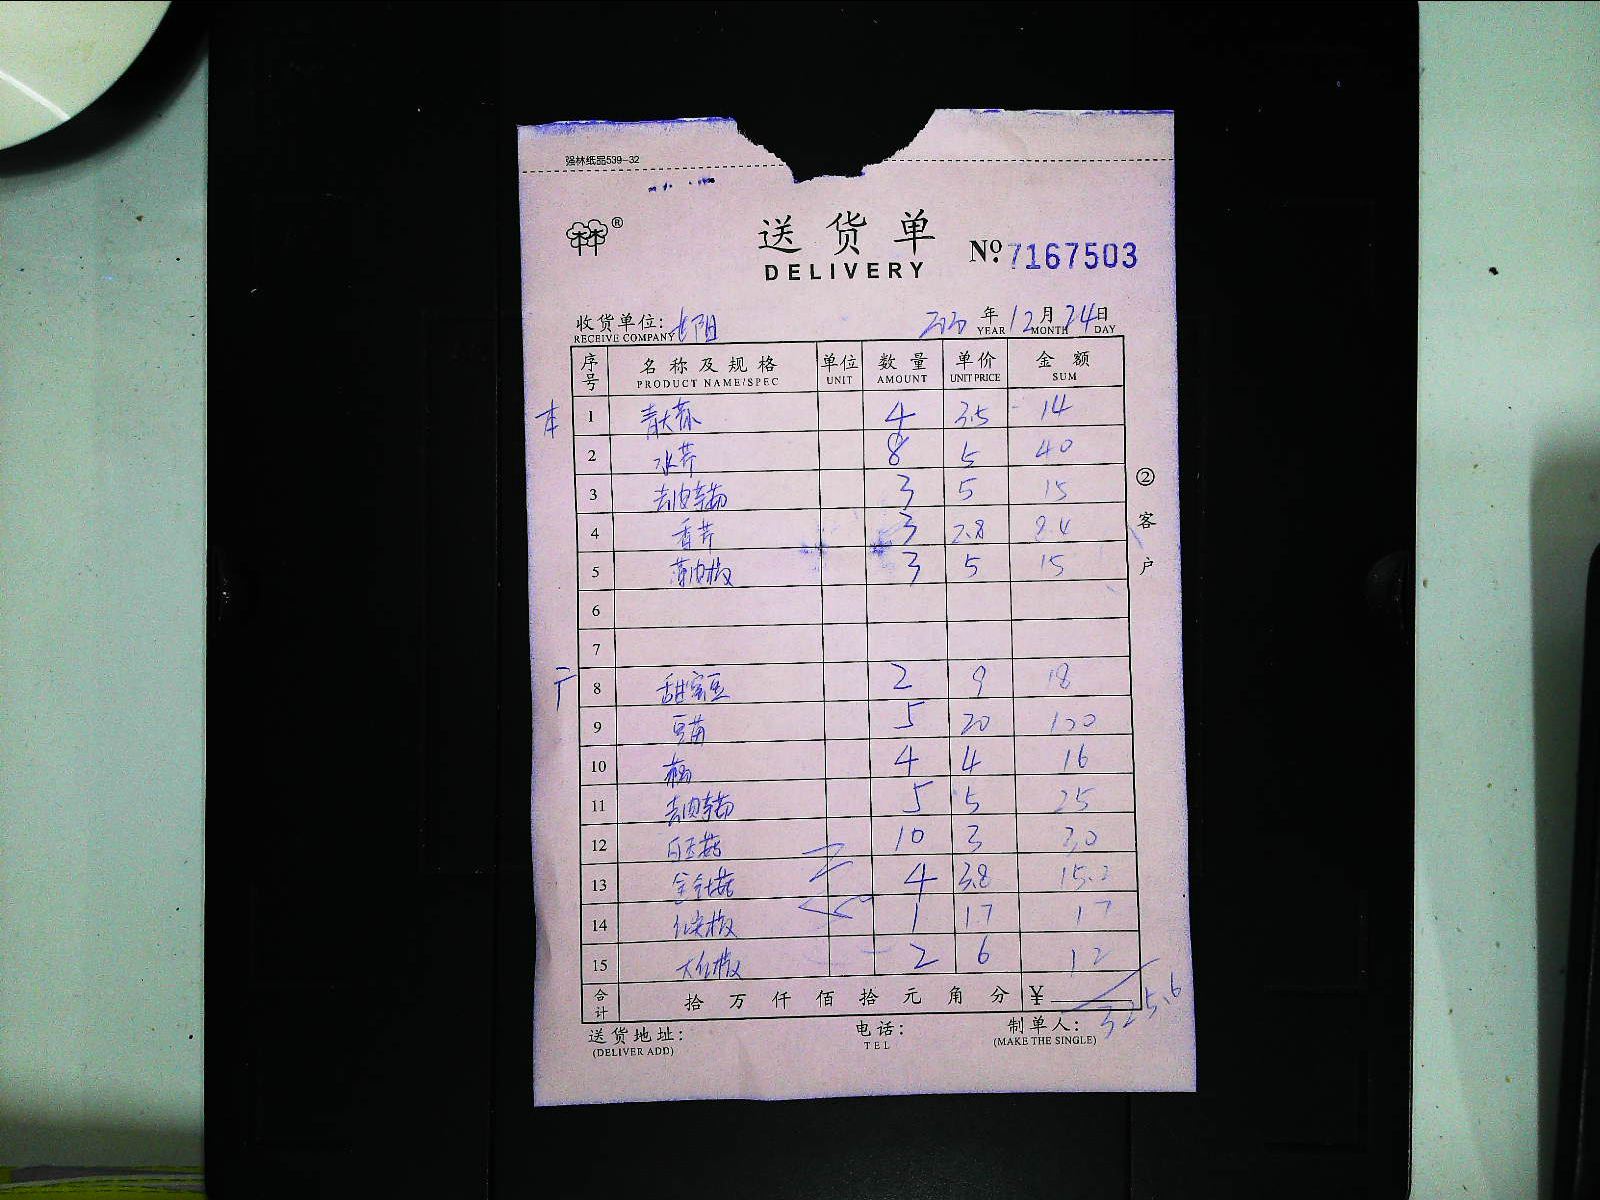 强林纸品539-32
林®
送货单
DELIVERY
No. 7167503
收货单位: 长阳 2020年12月24日
RECEIVE COMPANY YEAR MONTH DAY
序号 名称及规格 单位 数量 单价 金额
PRODUCT NAME/SPEC UNIT AMOUNT UNIT PRICE SUM
本 1 青大蒜 4 3.5 14
2 水芹 8 5 40
3 去皮莴 3 5 15
4 香芹 3 2.8 8.4
5 薄皮椒 3 5 15
6
7
广 8 甜蜜豆 2 9 18
9 豆苗 5 20 100
10 4 4 16
11 去皮莴 5 5 25
12 白玉菇 10 3 30
13 金针菇 4 3.8 15.2
14 红尖椒 1 17 17
15 大红椒 2 6 12
合计 拾万仟佰拾元角分 ¥ 325.6
送货地址: 电话: 制单人:
(DELIVER ADD) TEL (MAKE THE SINGLE)
②客户